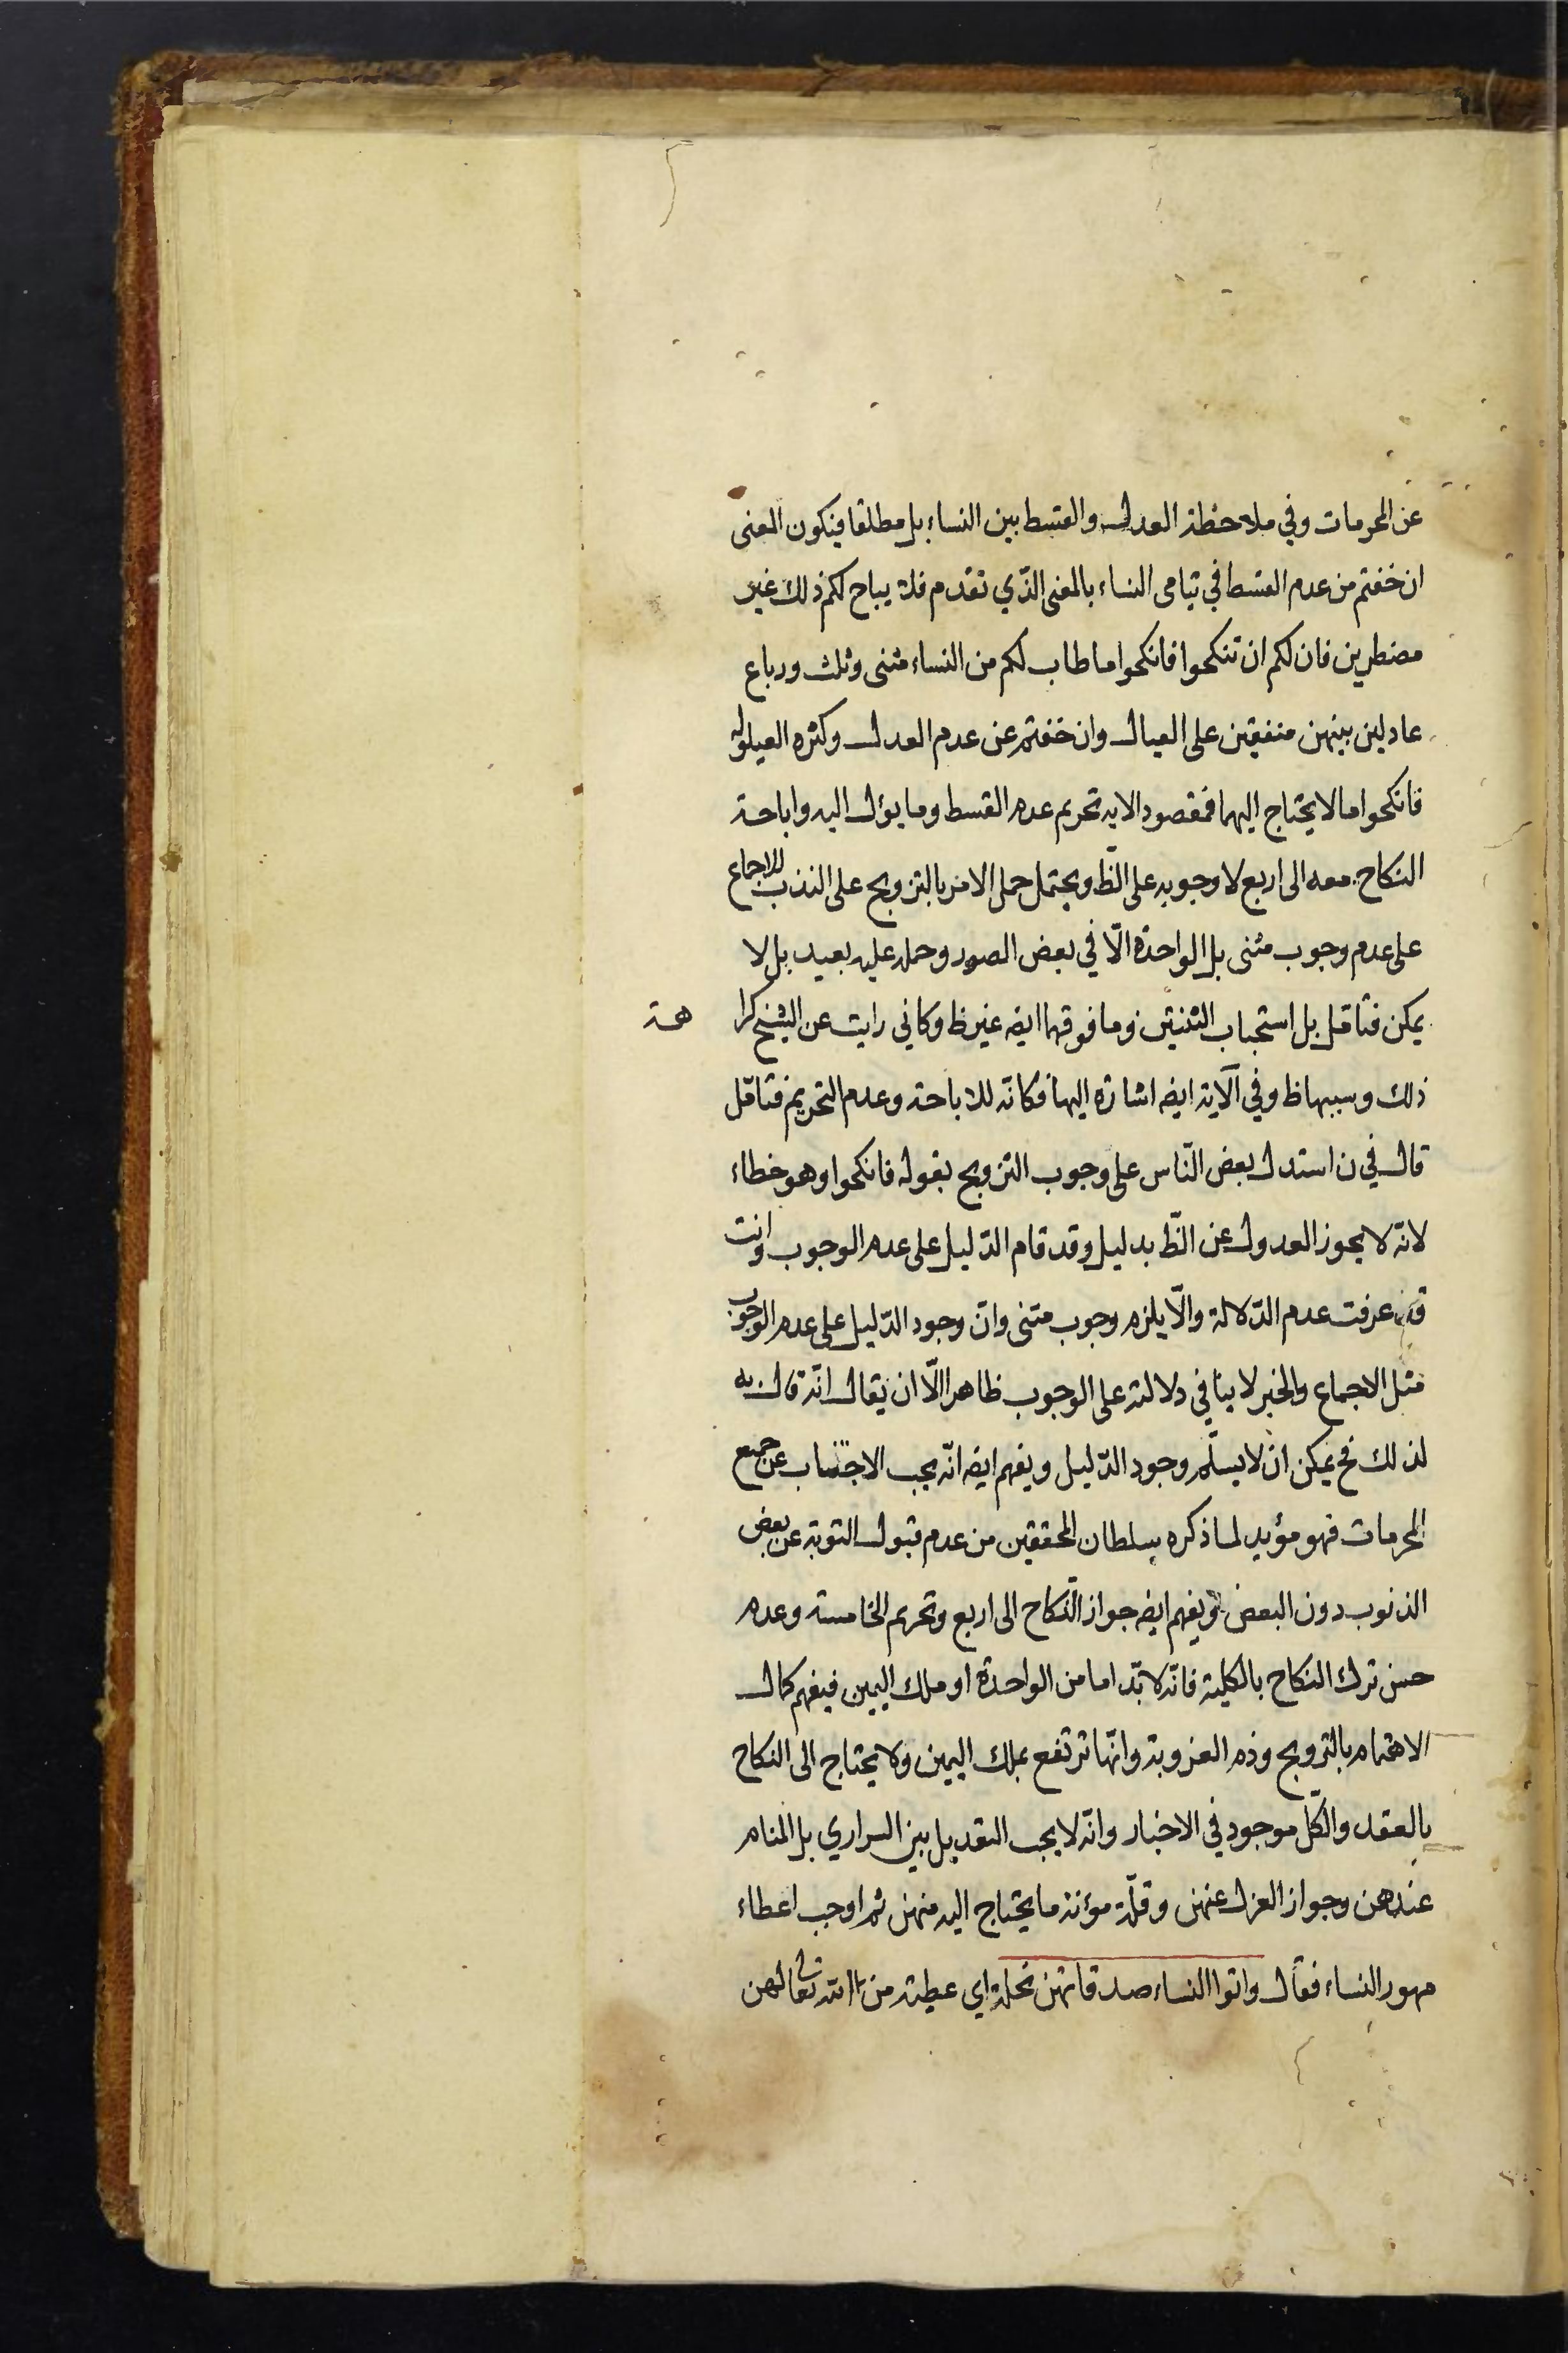 عن المحرمات وفي ملاحظة العدل والقسط بين النساء بل مطلقا فيكون المعنى
ان خفتم من عدم القسط في يتامى النساء بالمعنى الذّي تقدم فلا يباح لكم ذلك غير
مضطرين فان لكم ان تنكحوا فانكحوا ما طاب لكم من النساء مثنى وثلث ورباع
عادلين بينهن منفقين على العيال وان خفتم عن عدم العدل وكثره العيلوله
فانكحوا ما لا يحتاج اليهما فمقصود الايه تحريم عدم القسط وما يؤل اليه واباحة
النكاح معه الى اربع لا وجوبه على الظّ ويحتمل حمل الامر بالتزويج على الندب للاجماع
على عدم وجوب مثنى بل الواحدة الّا في بعض الصور وحمله عليه بعيد بل لا
يمكن فتأمّل بل استحباب الثنتين وما فوقهما ايضه غير ظ وكاني رايت عن الشيخ كرا
هة
ذلك وسببها ظ وفي الآية ايضه اشارة اليها فكانّه للاباحة وعدم التحريم فتامّل
قال في ن استدل بعض النّاس على وجوب التزويج بقوله فانكحوا وهو خطاء
لانّه لا يجوز العدول عن الظّ بدليل وقد قام الدّليل على عدم الوجوب وانت
قد عرفت عدم الدّلالة والّا يلزم وجوب مثنى وانّ وجود الدّليل على عدم الوجوب
مثل الاجماع والخبر لا ينافي دلالته على الوجوب ظاهرا الّا ان يقال انّه قال به
لذلك فح يمكن ان لا يسلّم وجود الدّليل ويفهم ايضه انّه يجب الاجتناب عن جميع
المحرمات فهو مؤيد لما ذكره سلطان المحققين من عدم قبول التوبة عن بعض
الذنوب دون البعض ويفهم ايضه جواز النّكاح الى اربع وتحريم الخامسة وعدم
حسن ترك النكاح بالكلية فانّه لا بّد اما من الواحدة او ملك اليمين فيفهم كمال
الاهتمام بالتزويج وذم العزوبة وانّها ترتفع بملك اليمين ولا يحتاج الى النكاح
بالعقد والكّل موجود في الاخبار وانّه لا يجب التعديل بين السراري بل المنام
عندهن وجواز العزل عنهن وقلّة مؤنة ما يحتاج اليه منهن ثم اوجب اعطاء
مهور النساء فقال واتوا النساء صدقاتهن نحلة اي عطية من الله تعالى لهن